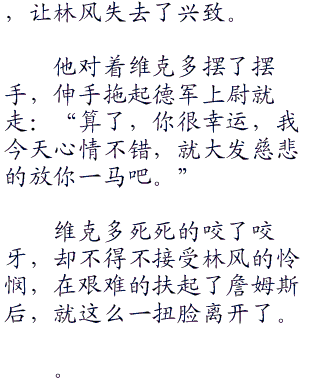 ，让林风失去了兴致。
他对着维克多摆了摆
手，伸手拖起德军上尉就
走：“算了，你很幸运，我
今天心情不错，就大发慈悲
的放你一马吧。”
维克多死死的咬了咬
牙，却不得不接受林风的怜
悯，在艰难的扶起了詹姆斯
后，就这么一扭脸离开了。
。